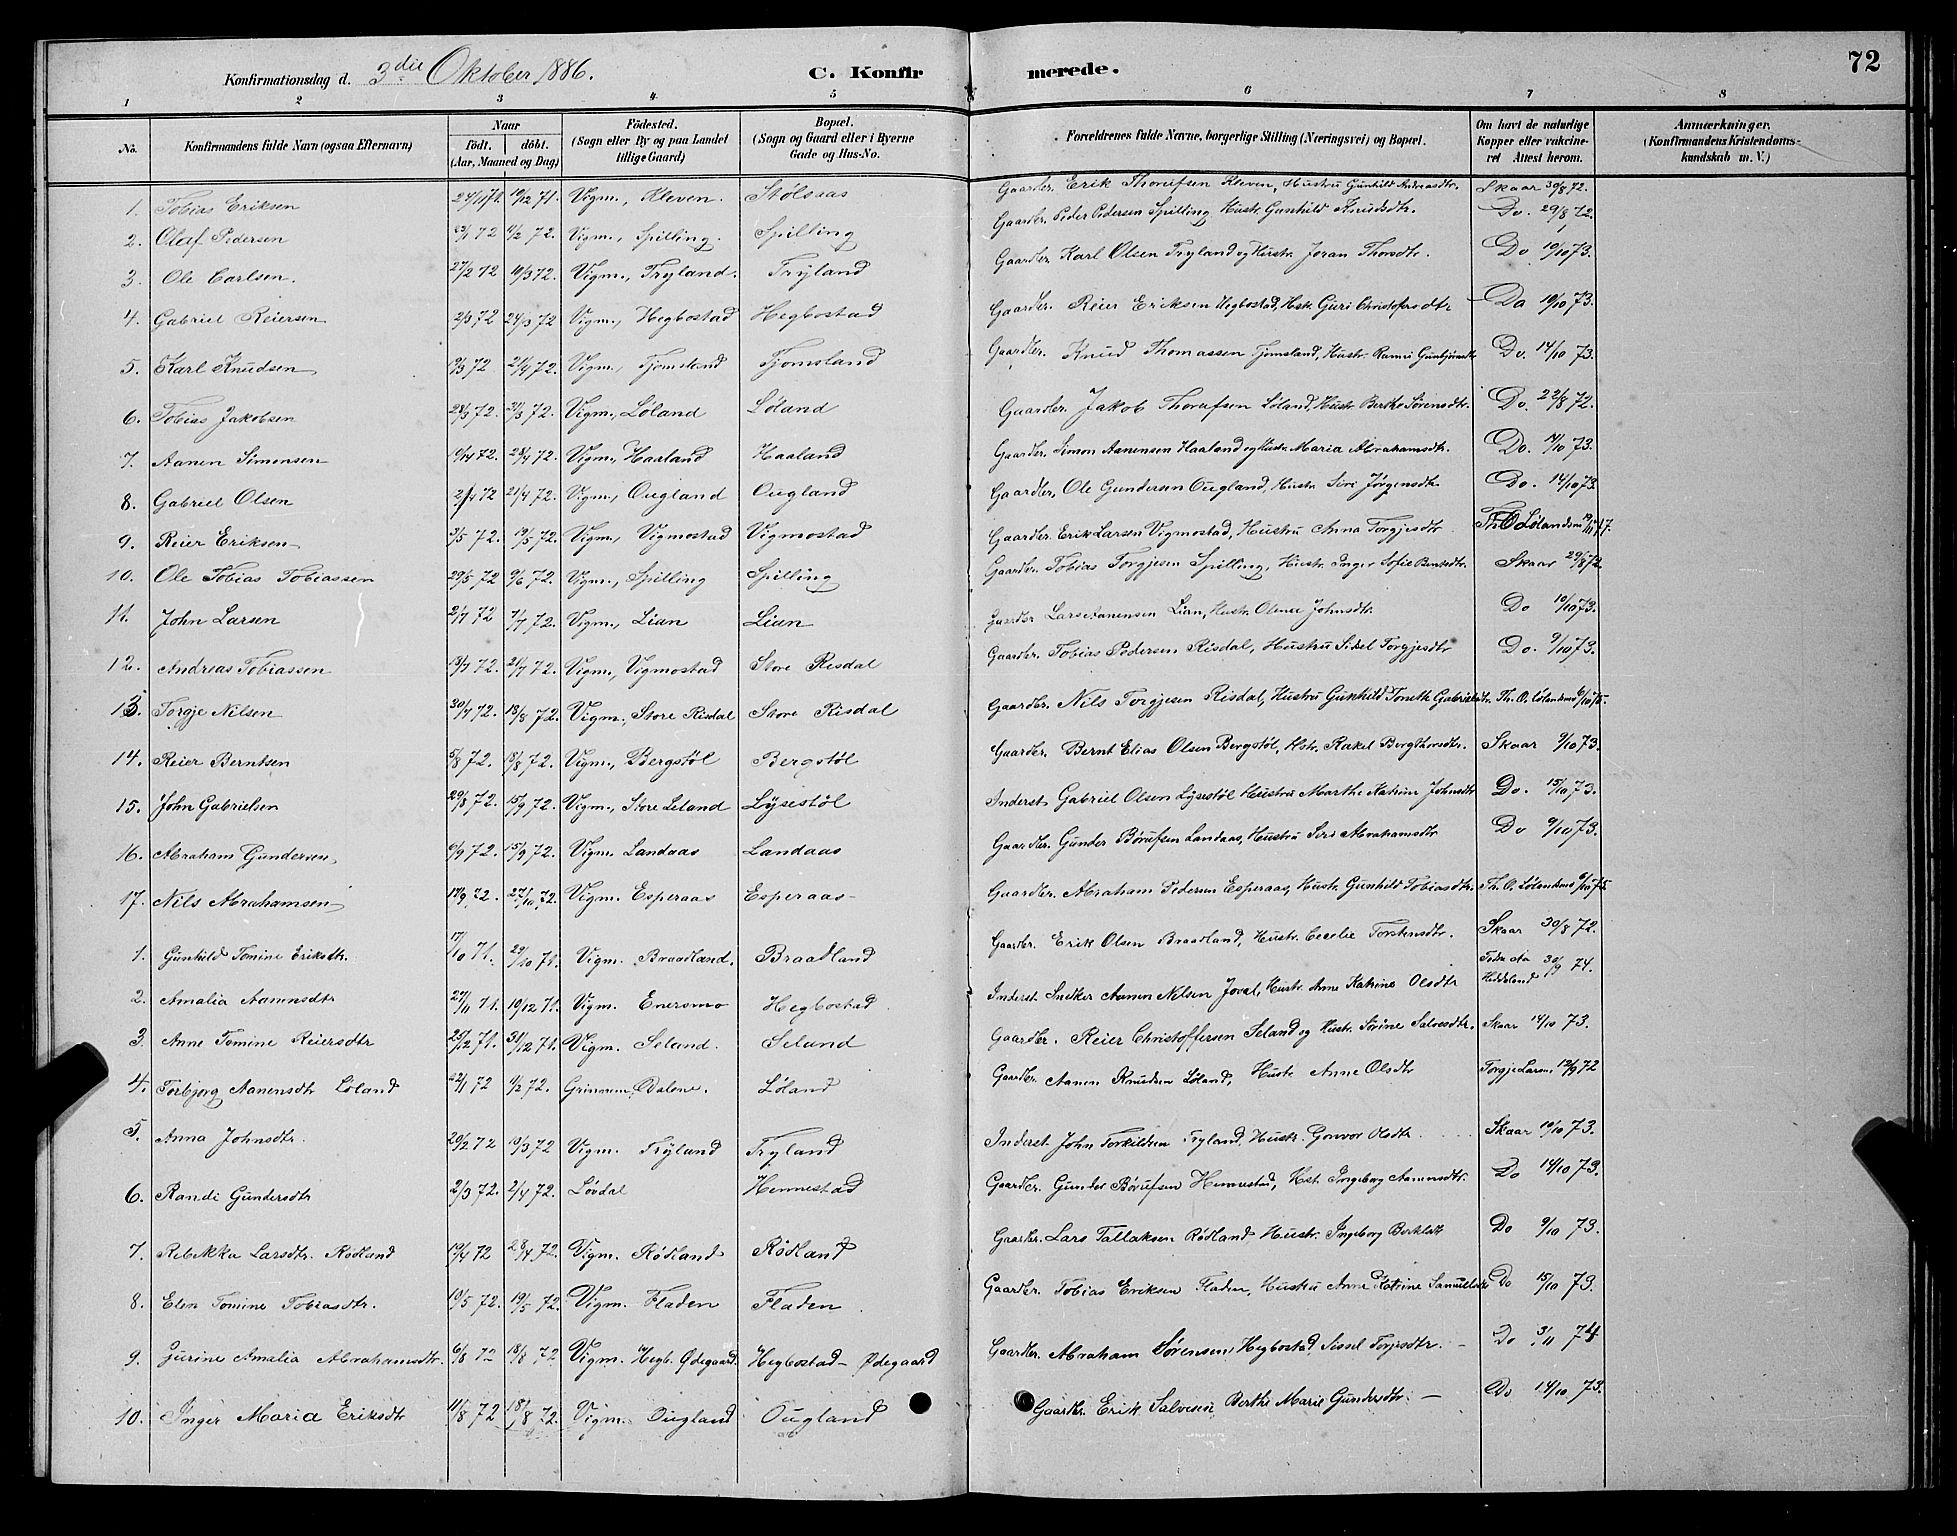 72
Konfirmationsdag d. 3die Oktober 1886. C. Konfirmerede.
1 2 3 4. 5 6 7 8
No. Konfirmandens fulde Navn (ogsaa Efternavn) Naar Födt. döbt. (Aar, Maaned og Dag) Födested. (Sogn eller By og paa Landet tillige Gaard) Bopæl. (Sogn og Gaard eller i Byerne Gade og Hus-No. Forældrenes fulde Navne, borgerlige Stilling (Næringsvei) og Bopæl. Om havt de naturlige Kopper eller vakcineret Attest herom. Anmærkninger. (Konfirmandens Kristendomskundskab m. V.)
1. Tobias Eriksen 24/11 71. 10/12 71. Vigm., Kleven. Stølsaas Gaardbr. Erik Thorufsen Kleven, Hustru Gunhild Andreasdtr. Skaar 30/8 72.
2. Olaf Pedersen 72 4/2 72. Vigm., Spilling. Spilling Gaardbr. Peder Pedersen Spilling, Hustr. Gunhild Knudsdtr. Do. 29/8 72.
3. Ole Carlsen. 27/2 72 10/3 72. Vigm., Tryland. Tryland Gaardbr. Karl Olsen Tryland og Hustr. Joran Thorsdtr. Do 10/10 73.
4. Gabriel Reiersen 2/3 72 24/3 72 Vigm., Hegbostad Hegbostad Gaardbr. Reier Eriksen Hegbostad, Hstr. Guri Christofersdtr Do 10/10 73.
5. Karl Knudsen 9/3 72 21/4 72. Vigm., Tjomsland Tjomsland Gaardbr. Knud Thomassen Tjomsland, Hustr. Do. 14/10 73.
6. Tobias Jakobsen 28/3 72. 31/3 72. Vigm., Løland Løland Gaardbr. Jakob Thorufsen Løland, Hustr. Berthe Sørensdtr. Do. 22/8 72.
7. Aanen Simonsen 72. 28/4 72. Vigm., Haaland Haaland Gaardbr. Simon Aanensen Haaland og Hustr. Maria Abrahamsdtr. Do. 73.
8. Gabriel Olsen 2/4 72 21/4 72. Vigm., Ougland Ougland Gaardbr. Ole Gundersen Ougland, Hustr. Siri Jørgensdtr. Do. 14/10 73.
9. Reier Eriksen 3/5 72. 19/5 72. Vigm., Vigmostad Vigmostad Gaardbr. Erik Larsen Vigmostad, Hustru Anna Torgjesdtr Th. O. Lølandsmo
10. Ole Tobias Tobiassen 29/5 72 9/6 72. Vigm., Spilling Spilling Gaardbr. Tobias Torgjesen Spilling, Hustr. Inger Sofie Berntsdtr. Skaar 29/8 72.
11. John Larsen 2/7 72 7/7 72. Vigm., Lian Lian Gaardbr Lars Aanensen Lian, Hustr. Olene Johnsdtr. Do 10/10 73.
12. Andreas Tobiassen 13/7 72. 21/7 72. Vigm., Vigmostad Store Risdal Gaardbr. Tobias Pedersen Risdal, Hustru Sidsel Torgjesdtr Do. 9/10 73.
13. Torgje Nilsen 30/7 72. 18/8 72. Vigm., Store Risdal Store Risdal Gaardbr. Nils Torgjesen Risdal, Hustru Gunhild Tonette Gabrielsdtr. Th. O. Lølandsmo 6/10 75.
14. Reier Berntsen 5/8 72. 18/8 72. Vigm., Bergstøl Bergstøl Gaardbr. Bernt Elias Olsen Bergstøl, Hstr. Rakel Bergthorsdtr. Skaar 9/10 73.
15. John Gabrielsen 29/8 72. 15/9 72. Vigm., Store Leland Lysestøl Inderst Gabriel Olsen Lysestøl Hustru Marthe Katrine Johnsdtr Do. 15/10 73.
16. Abraham Gundersen 6/9 72. 15/9 72. Vigm. Landaas Landaas Gaardbr. Gunder Børufsen Landaas, Hustru Siri Abrahamsdtr Do 9/10 73.
17. Nils Abrahamsen 72. 27/10 72. Vigm. Esperaas Esperaas Gaardbr. Abraham Pedersen Esperaas, Hustr. Gunhild Tobiasdtr. Th. O. Lølandsmo 6/10 75.
1. Gunhild Tomine Eriksdtr. 17/10 71. 29/10 71. Vigm. Braadland. Braadland Gaardbr. Erik Olsen Braadland, Hustr. Cecelie Torstensdtr. Skaar 30/8 72.
2. Amalia Aanensdtr 27/11 71. 10/12 71. Vigm. Enersmo Hegbostad Inderst. Snedker Aanen Nilsen Joval, Hustr. Anne Katrine Olsdtr Heddeland 30/9 74.
3. Anne Tomine Reiersdtr 25/12 71. 31/12 71. Vigm. Seland. Seland Gaardbr. Reier Christoffersen Seland og Hustr. Sørine Salvesdtr. Skaar 14/10 73.
4. Torbjørg Aanensdtr Løland 22/1 72 72. Grimum, Dalene. Løland Gaardbr. Aanen Knudsen Løland, Hustr Anne Olsdtr Torgje Larsen 12/9 72
5. Anna Johnsdtr. 29/2 72 10/3 72 Vigm. Tryland Tryland Inderst. John Torkildsen Tryland, Hustr. Gonvor Olsdtr. Skaar 10/10 73.
6. Randi Gundersdtr 2/3 72. 2/4 72. Løvdal Hennestad Gaardbr. Gunder Børufsen Hennestad, Hst. Ingeborg Aanensdtr. Do 14/10 73.
7. Rebekka Larsdtr. Rødland 19/4 72 28/4 72. Vigm. Rødland Rødland Gaardbr. Lars Tallaksen Rødland Hustr. Ingeborg Do 9/10 73.
8. Elen Tomine Tobiasdtr. 10/5 72. 19/5 72. Vigm. Fladen Fladen Gaardbr. Tobias Eriksen Fladen, Hustru Anne Katrine Samuelsdtr Do 15/10 73.
9. Gurine Amalia Abrahamsdtr. 6/8 72 18/8 72. Vigm. Hegb. Ødegaard. Hegbostad - Ødegaard Gaardbr. Abraham Sørensen, Hegbostad Sissel Torjesdtr. — Do 3/11 74
10. Inger Maria Eriksdtr 11/8 72 18/8 72. Vigm. Ougland Ougland Gaardbr. Erik Salvesen, Berthe Marie Gundersdtr. — Do 14/10 73.